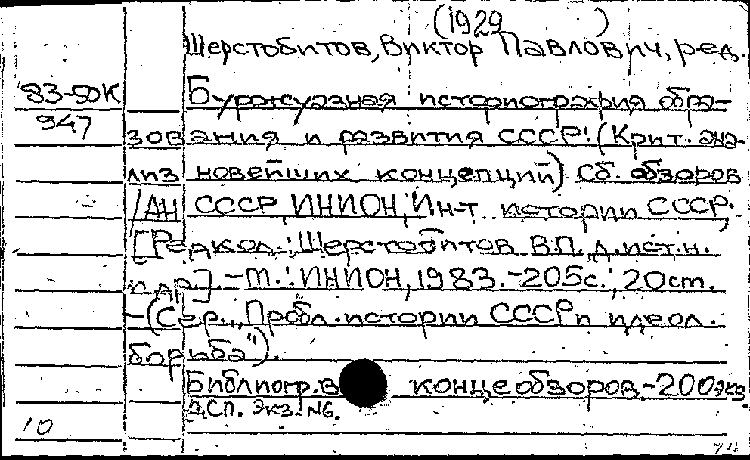 (1929 )
Шерстобитов, Виктор Павлович, ред.
83-50К Буржуазная историография обра-
947 зования и развития СССР: (Крит. ана-
лиз новейших концепций) Сб. обзоров
/АН СССР, ИНИОН, Ин-т истории СССР;
[Редкол.: Шерстобитов В.П., д.ист.н.
и др.]. - М.: ИНИОН, 1983. - 205с.; 20см.
- (Сер. "Пробл. истории СССР и идеол.
борьба").
Библиогр. в конце обзоров - 200 экз
ДСП. Экз. N6.
10